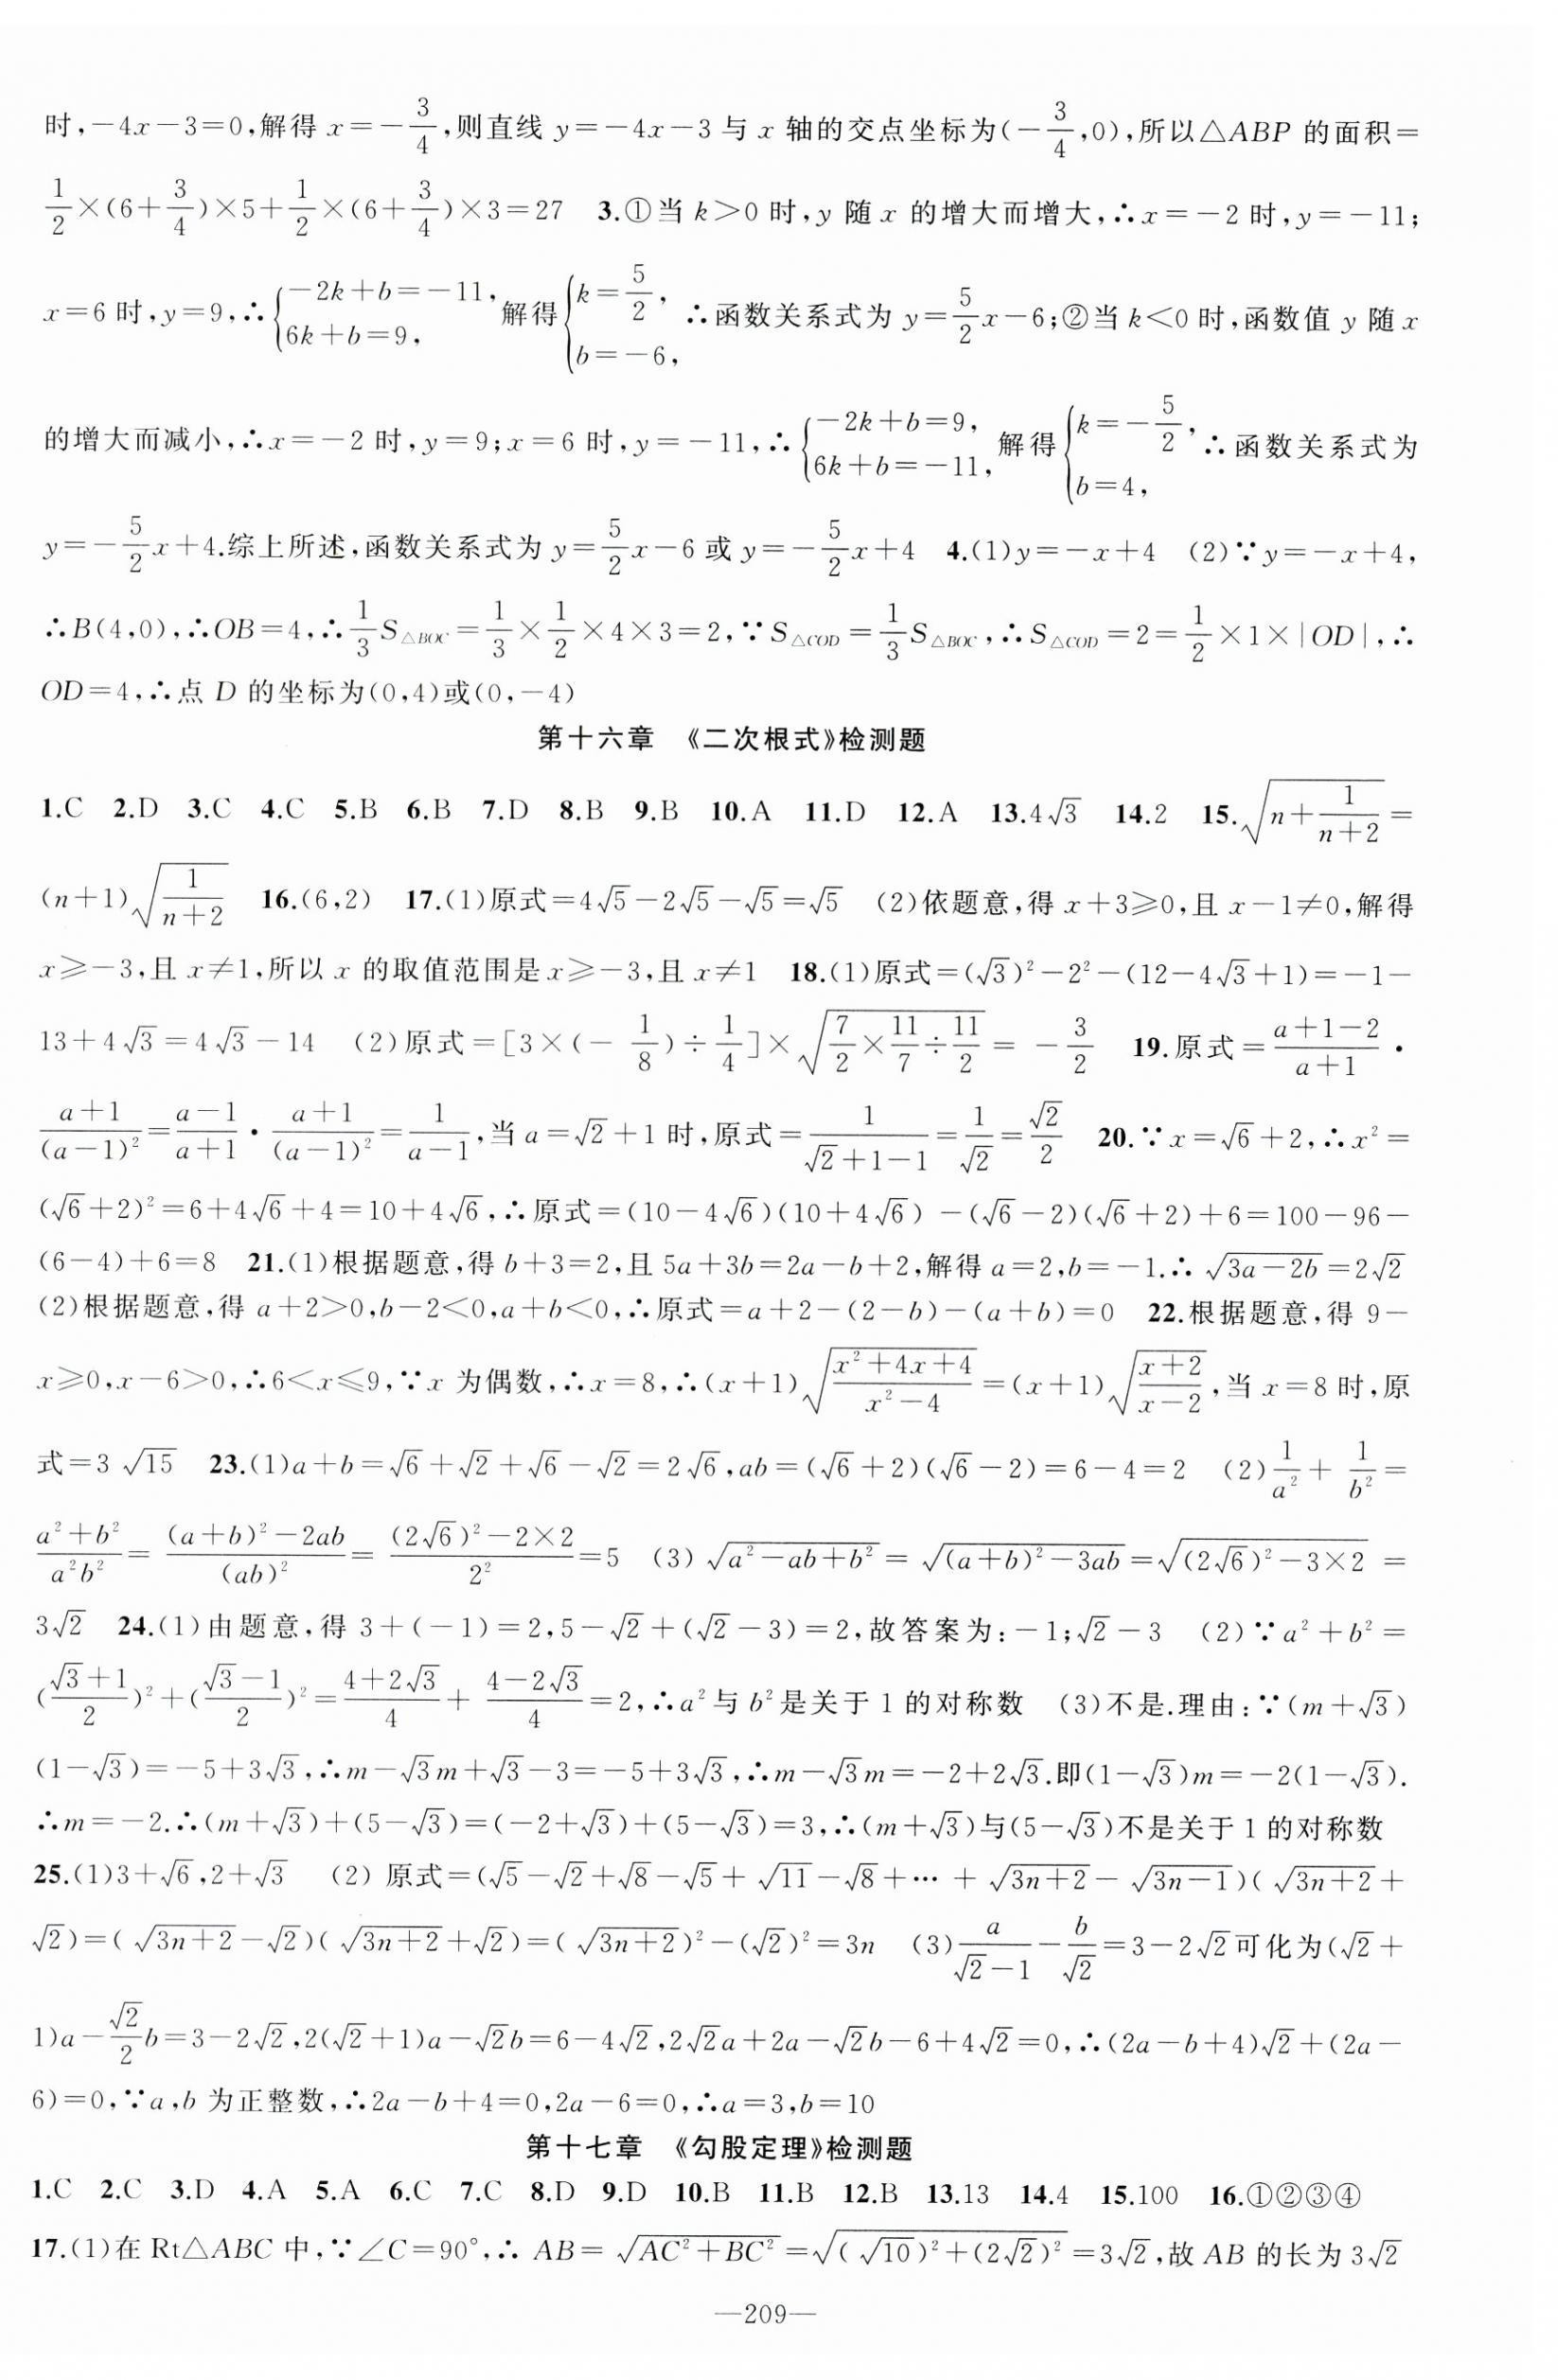 时,-4x-3=0,解得 x=-3/4,则直线 y=-4x-3 与 x 轴的交点坐标为(-3/4,0),所以△ABP 的面积=
1/2×(6+3/4)×5+1/2×(6+3/4)×3=27 3.①当 k>0 时,y 随 x 的增大而增大,∴x=-2 时,y=-11;
x=6 时,y=9,∴{-2k+b=-11, 6k+b=9, 解得{k=5/2, b=-6, ∴函数关系式为 y=5/2x-6;②当 k<0 时,函数值 y 随 x
的增大而减小,∴x=-2 时,y=9;x=6 时,y=-11,∴{-2k+b=9, 6k+b=-11, 解得{k=-5/2, b=4, ∴函数关系式为
y=-5/2x+4.综上所述,函数关系式为 y=5/2x-6 或 y=-5/2x+4 4.(1)y=-x+4 (2)∵y=-x+4,
∴B(4,0),∴OB=4,∴1/3S△BOC=1/3×1/2×4×3=2,∵S△COD=1/3S△BOC,∴S△COD=2=1/2×1×|OD|,∴
OD=4,∴点 D 的坐标为(0,4)或(0,-4)
第十六章 《二次根式》检测题
1.C 2.D 3.C 4.C 5.B 6.B 7.D 8.B 9.B 10.A 11.D 12.A 13.4√3 14.2 15.√(n+1/(n+2))=
(n+1)√(1/(n+2)) 16.(6,2) 17.(1)原式=4√5-2√5-√5=√5 (2)依题意,得 x+3≥0,且 x-1≠0,解得
x≥-3,且 x≠1,所以 x 的取值范围是 x≥-3,且 x≠1 18.(1)原式=(√3)²-2²-(12-4√3+1)=-1-
13+4√3=4√3-14 (2)原式=[3×(-1/8)÷1/4]×√(7/2×11/7÷11/2)=-3/2 19.原式=(a+1-2)/(a+1)·
(a+1)/(a-1)²=(a-1)/(a+1)·(a+1)/(a-1)²=1/(a-1),当 a=√2+1 时,原式=1/(√2+1-1)=1/√2=√2/2 20.∵x=√6+2,∴x²=
(√6+2)²=6+4√6+4=10+4√6,∴原式=(10-4√6)(10+4√6)-(√6-2)(√6+2)+6=100-96-
(6-4)+6=8 21.(1)根据题意,得 b+3=2,且 5a+3b=2a-b+2,解得 a=2,b=-1.∴√(3a-2b)=2√2
(2)根据题意,得 a+2>0,b-2<0,a+b<0,∴原式=a+2-(2-b)-(a+b)=0 22.根据题意,得 9-
x≥0,x-6>0,∴6<x≤9,∵x 为偶数,∴x=8,∴(x+1)√((x²+4x+4)/(x²-4))=(x+1)√((x+2)/(x-2)),当 x=8 时,原
式=3√15 23.(1)a+b=√6+√2+√6-√2=2√6,ab=(√6+2)(√6-2)=6-4=2 (2)1/a²+1/b²=
(a²+b²)/a²b²=((a+b)²-2ab)/(ab)²=((2√6)²-2×2)/2²=5 (3)√(a²-ab+b²)=√((a+b)²-3ab)=√((2√6)²-3×2)=
3√2 24.(1)由题意,得 3+(-1)=2,5-√2+(√2-3)=2,故答案为:-1;√2-3 (2)∵a²+b²=
((√3+1)/2)²+((√3-1)/2)²=(4+2√3)/4+(4-2√3)/4=2,∴a²与 b²是关于 1 的对称数 (3)不是.理由:∵(m+√3)
(1-√3)=-5+3√3,∴m-√3m+√3-3=-5+3√3,∴m-√3m=-2+2√3.即(1-√3)m=-2(1-√3).
∴m=-2.∴(m+√3)+(5-√3)=(-2+√3)+(5-√3)=3,∴(m+√3)与(5-√3)不是关于 1 的对称数
25.(1)3+√6,2+√3 (2)原式=(√5-√2+√8-√5+√11-√8+…+√(3n+2)-√(3n-1))(√(3n+2)+
√2)=(√(3n+2)-√2)(√(3n+2)+√2)=(√(3n+2))²-(√2)²=3n (3)a/(√2-1)-b/√2=3-2√2可化为(√2+
1)a-√2/2b=3-2√2,2(√2+1)a-√2b=6-4√2,2√2a+2a-√2b-6+4√2=0,∴(2a-b+4)√2+(2a-
6)=0,∵a,b 为正整数,∴2a-b+4=0,2a-6=0,∴a=3,b=10
第十七章 《勾股定理》检测题
1.C 2.C 3.D 4.A 5.A 6.C 7.C 8.D 9.D 10.B 11.B 12.B 13.13 14.4 15.100 16.①②③④
17.(1)在 Rt△ABC 中,∵∠C=90°,∴AB=√(AC²+BC²)=√((√10)²+(2√2)²)=3√2,故 AB 的长为 3√2
—209—